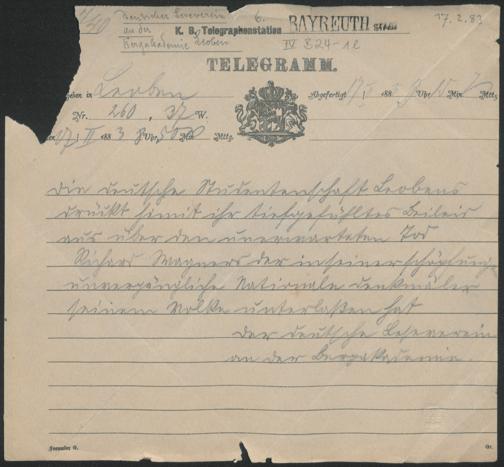 Deutscher Leseverein
an der
Bergakademie Leoben
6.
K. B. Telegraphenstation
BAYREUTH
STADT
IV B 24-12
17.2.83
TELEGRAMM.
geben in Leoben
Abgefertigt 17/II 1883 Uhr Min. Mttg.
Nr. 260, 37 W.
17/II 1883 Uhr 50 Min. Mttg.
die deutsche Studentenschaft Leobens
drückt hiemit ihr tiefgefühltes Beileid
aus über den unerwarteten Tod
Richard Wagners der in seiner schöpfung
unvergängliche Nationale denkmäler
seinem Volke unterlaßen hat
der deutsche Leseverein
an der Bergakademie.
Formular G.
Gr.